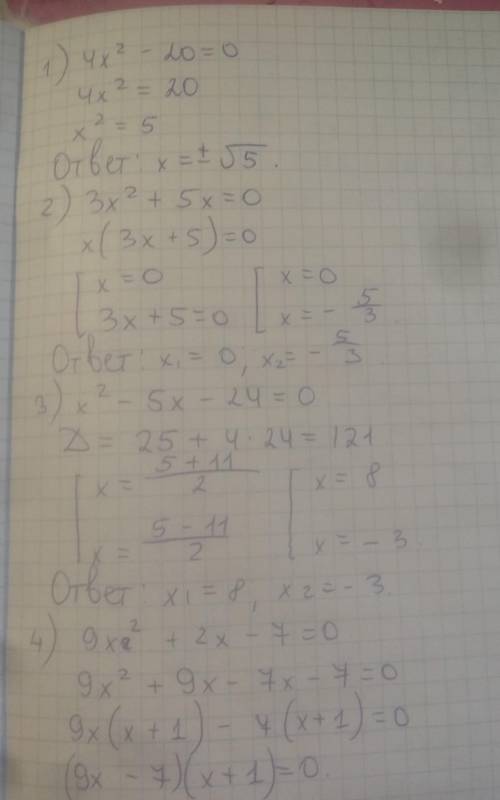 1) 4x² - 20 = 0
4x² = 20
x² = 5
Ответ: x = ± √5.
2) 3x² + 5x = 0
x(3x + 5) = 0
[ x = 0 [ x = 0
3x + 5 = 0 x = - 5/3.
Ответ: x₁ = 0, x₂ = - 5/3
3) x² - 5x - 24 = 0
D = 25 + 4 · 24 = 121
[ x = (5 + 11)/2 [ x = 8
x = (5 - 11)/2 x = - 3.
Ответ: x₁ = 8, x₂ = - 3.
4) 9x² + 2x - 7 = 0
9x² + 9x - 7x - 7 = 0
9x(x + 1) - 7(x + 1) = 0
(9x - 7)(x + 1) = 0.